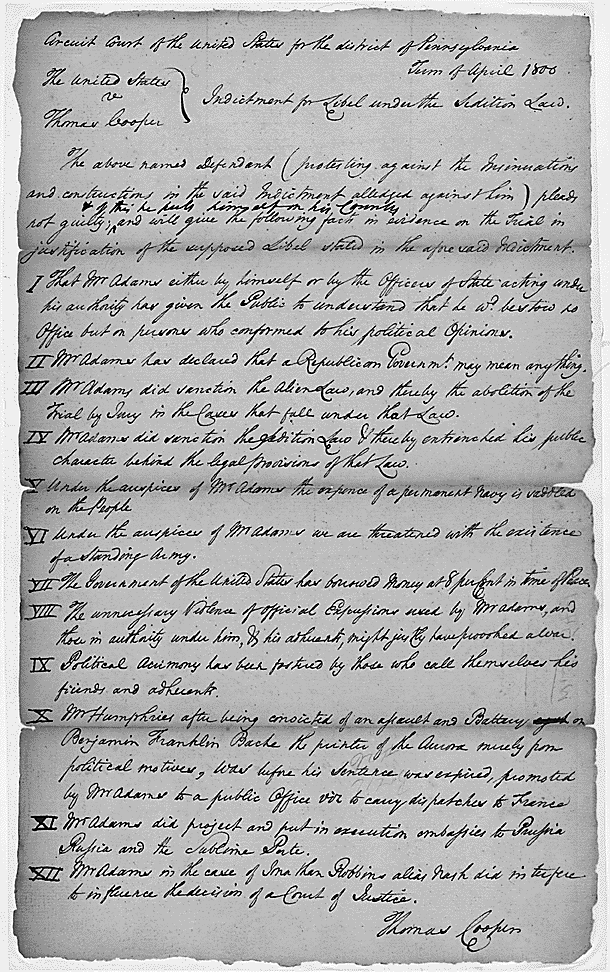 Circuit Court of the United States for the district of Pennsylvania
Term of April 1800.
The United States
v
Thomas Cooper
Indictment for Libel under the Sedition Law.
The above named Defendant (protesting against the Insinuations
and constructions in the said Indictment alledged against him) pleads
& of this he puts himself on his Country
not guilty; and will give the following facts in evidence on the Trial in
justification of the supposed Libel stated in the aforesaid Indictment.
I That Mr Adams either by himself or by the Officers of State acting under
his authority has given the Public to understand that he wd. bestow no
Office but on persons who conformed to his political Opinions.
II Mr Adams has declared that a Republican Governmt. may mean anything.
III Mr Adams did sanction the Alien Law, and thereby the abolition of the
Trial by Jury in the Cases that fall under that Law.
IV Mr Adams did sanction the Sedition Law & thereby entrenched his public
character behind the legal provisions of that Law.
V Under the auspices of Mr Adams the expence of a permanent Navy is saddled
on the People
VI Under the auspices of Mr Adams we are threatened with the existence
of a Standing Army.
VII The Government of the United States has borrowed Money at 8 per Cent in time of Peace
VIII The unnecessary Violence of official Expressions used by Mr Adams, and
those in authority under him, & his adherents, might justly have provoked a war.
IX Political Acrimony has been fostered by those who call themselves his
friends and adherents.
X Mr Humphries after being convicted of an assault and Battery on
Benjamin Franklin Bache the printer of the Aurora merely from
political motives, was before his Sentence was expired, promoted
by Mr Adams to a public Office viz to carry dispatches to France
XI Mr Adams did project and put in execution embassies to Prussia
Russia and the Sublime Porte.
XII Mr Adams in the case of Jonathan Robbins alias Nash did interfere
to influence the decision of a Court of Justice.
Thomas Cooper